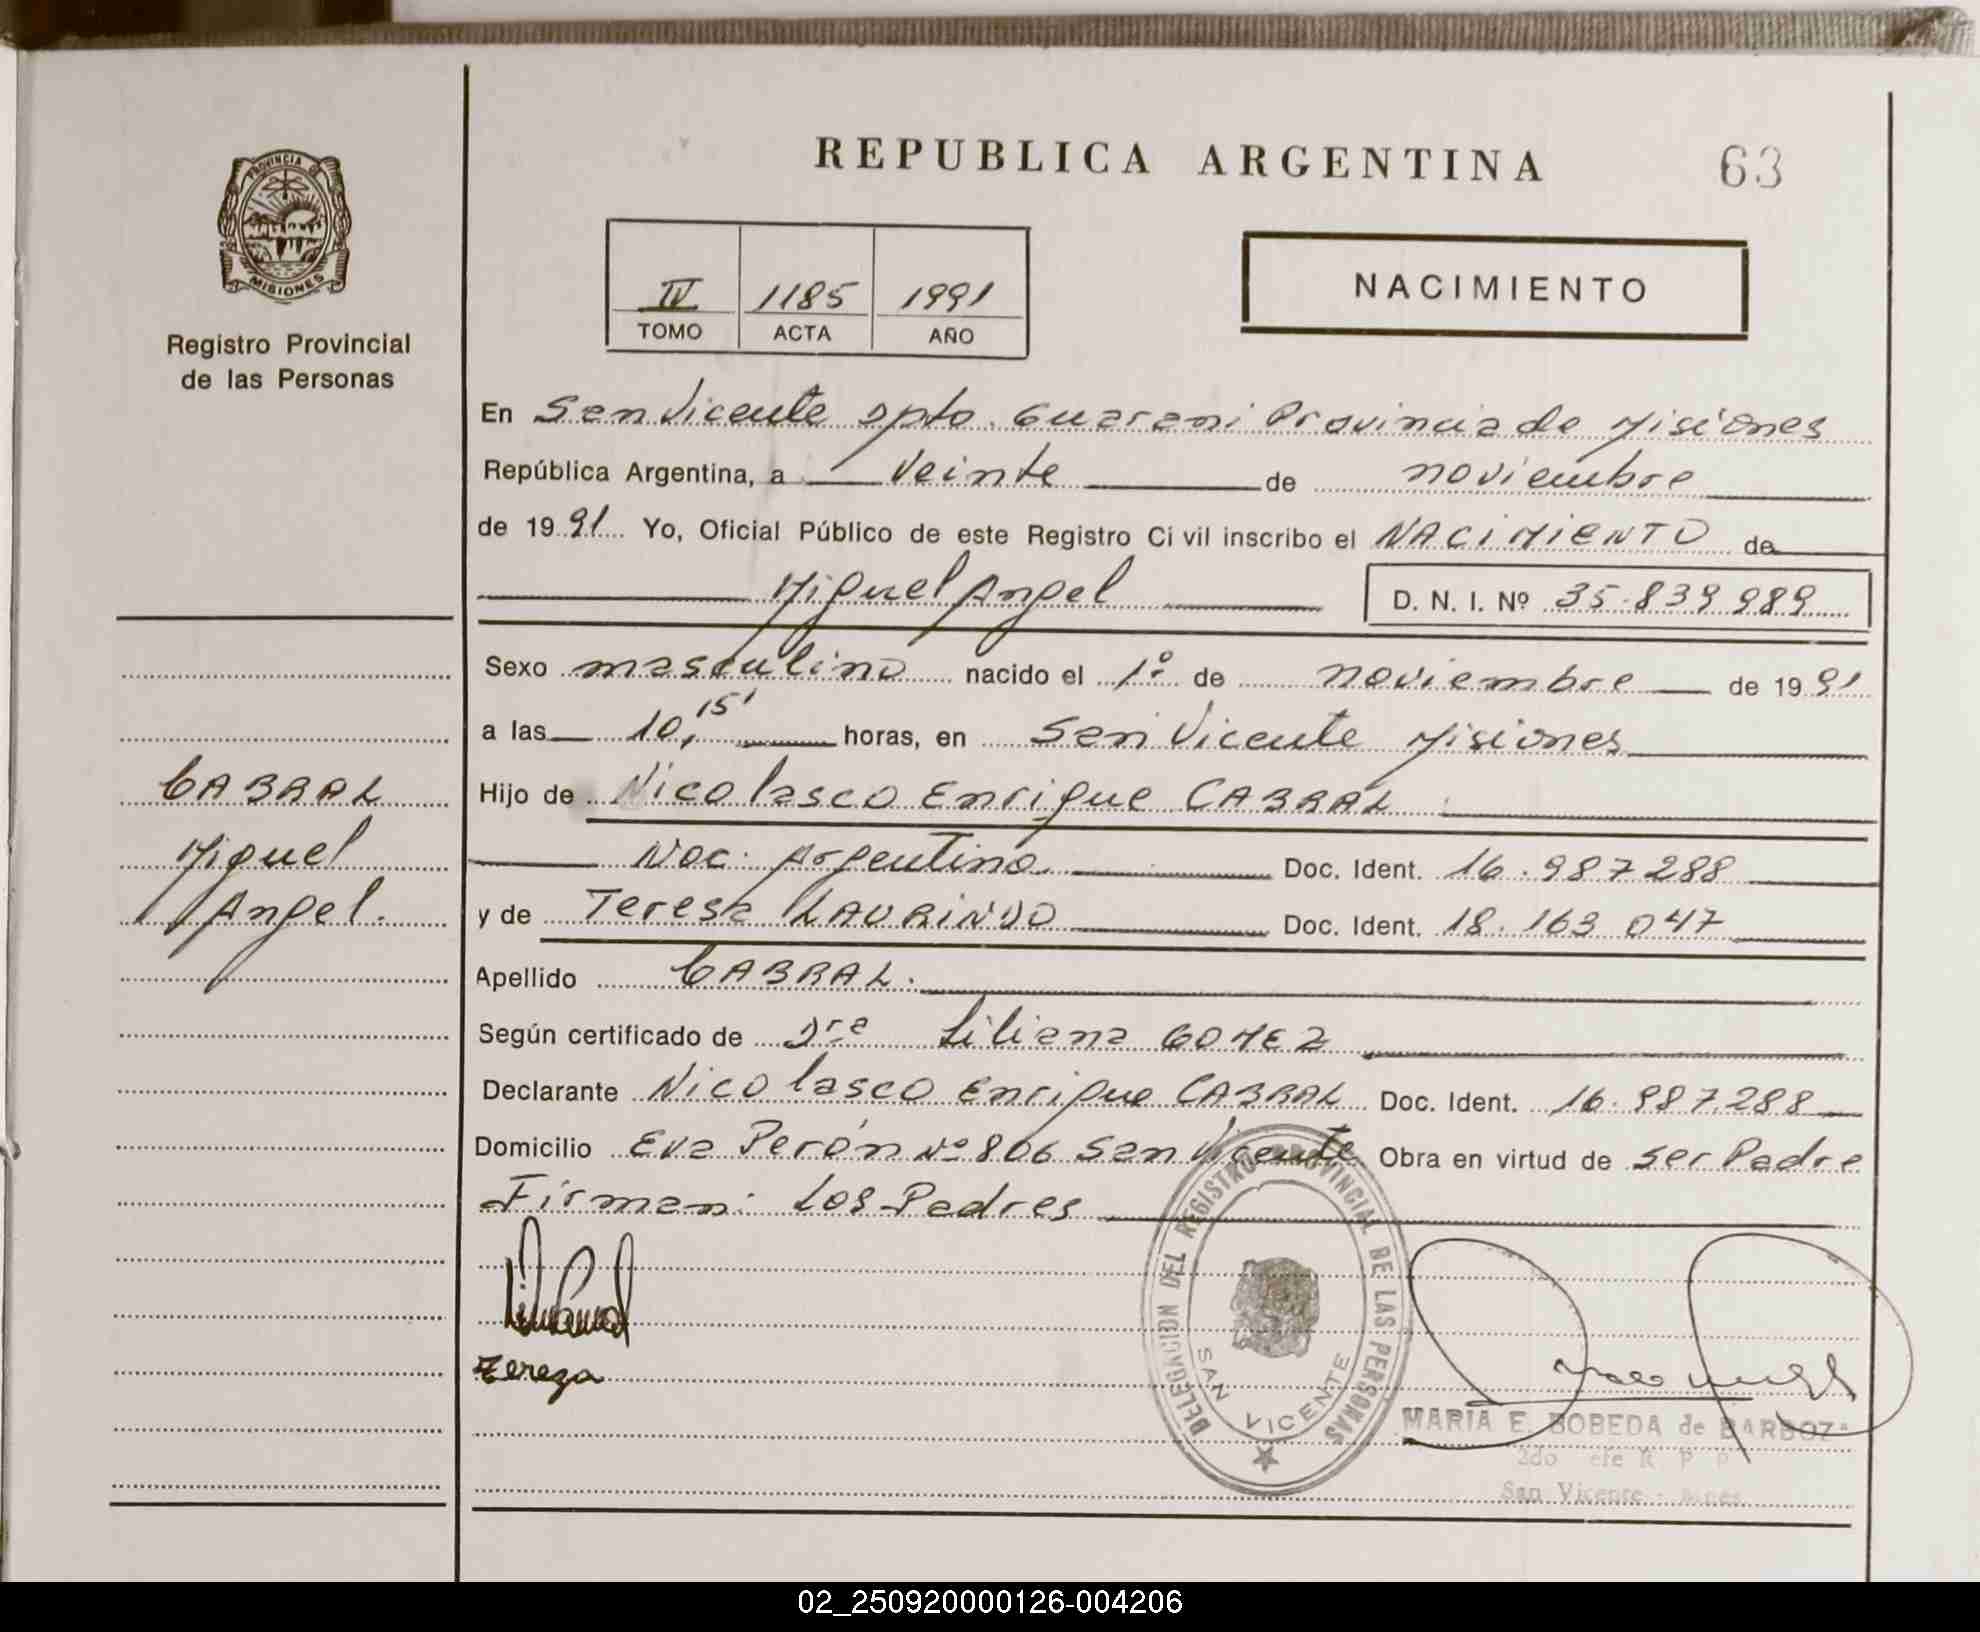 REPUBLICA ARGENTINA
63
PROVINCIA DE
MISIONES
Registro Provincial
de las Personas
IV 1185 1991
TOMO ACTA AÑO
NACIMIENTO
En San Vicente Dpto. Guarani Provincia de Misiones
República Argentina, a veinte de noviembre
de 1991 Yo, Oficial Público de este Registro Civil inscribo el NACIMIENTO de
Miguel Angel D. N. I. Nº 35.839 989
Sexo masculino nacido el 1º de noviembre de 1991
a las 10,15' horas, en San Vicente Misiones
Hijo de Nicolasco Enrique CABRAL
Nac. Argentino Doc. Ident. 16.987288
y de Teresa LAURINDO Doc. Ident. 18.163 047
Apellido CABRAL.
Según certificado de Dra Liliana GOMEZ
Declarante Nicolasco Enrique CABRAL Doc. Ident. 16.987.288
Domicilio Eva Perón Nº 806 San Vicente Obra en virtud de ser Padre
Firman: Los Padres
CABRAL
Miguel
Angel.
Tereza
DELEGACION DEL REGISTRO PROVINCIAL DE LAS PERSONAS
SAN VICENTE
MARIA E. BOBEDA de BARBOZA
2do efe R P P
San Vicente
02_250920000126-004206